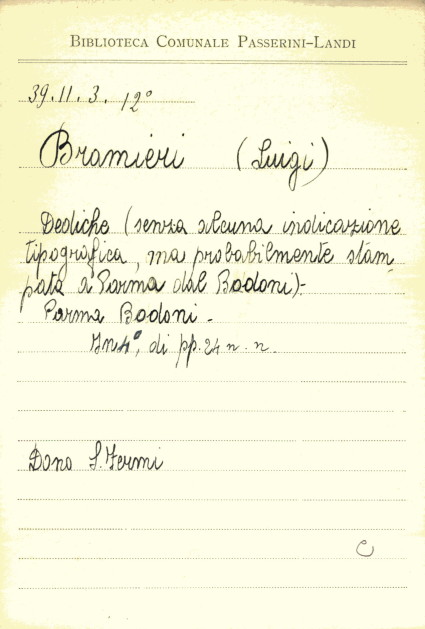 BIBLIOTECA COMUNALE PASSERINI-LANDI
39.11.3. 12°
Bramieri (Luigi)
Dediche (senza alcuna indicazione
tipografica, ma probabilmente stam
pata a Parma dal Bodoni)-
Parma Bodoni -
In 4°, di pp. 24 n. n.
Dono S. Fermi
C